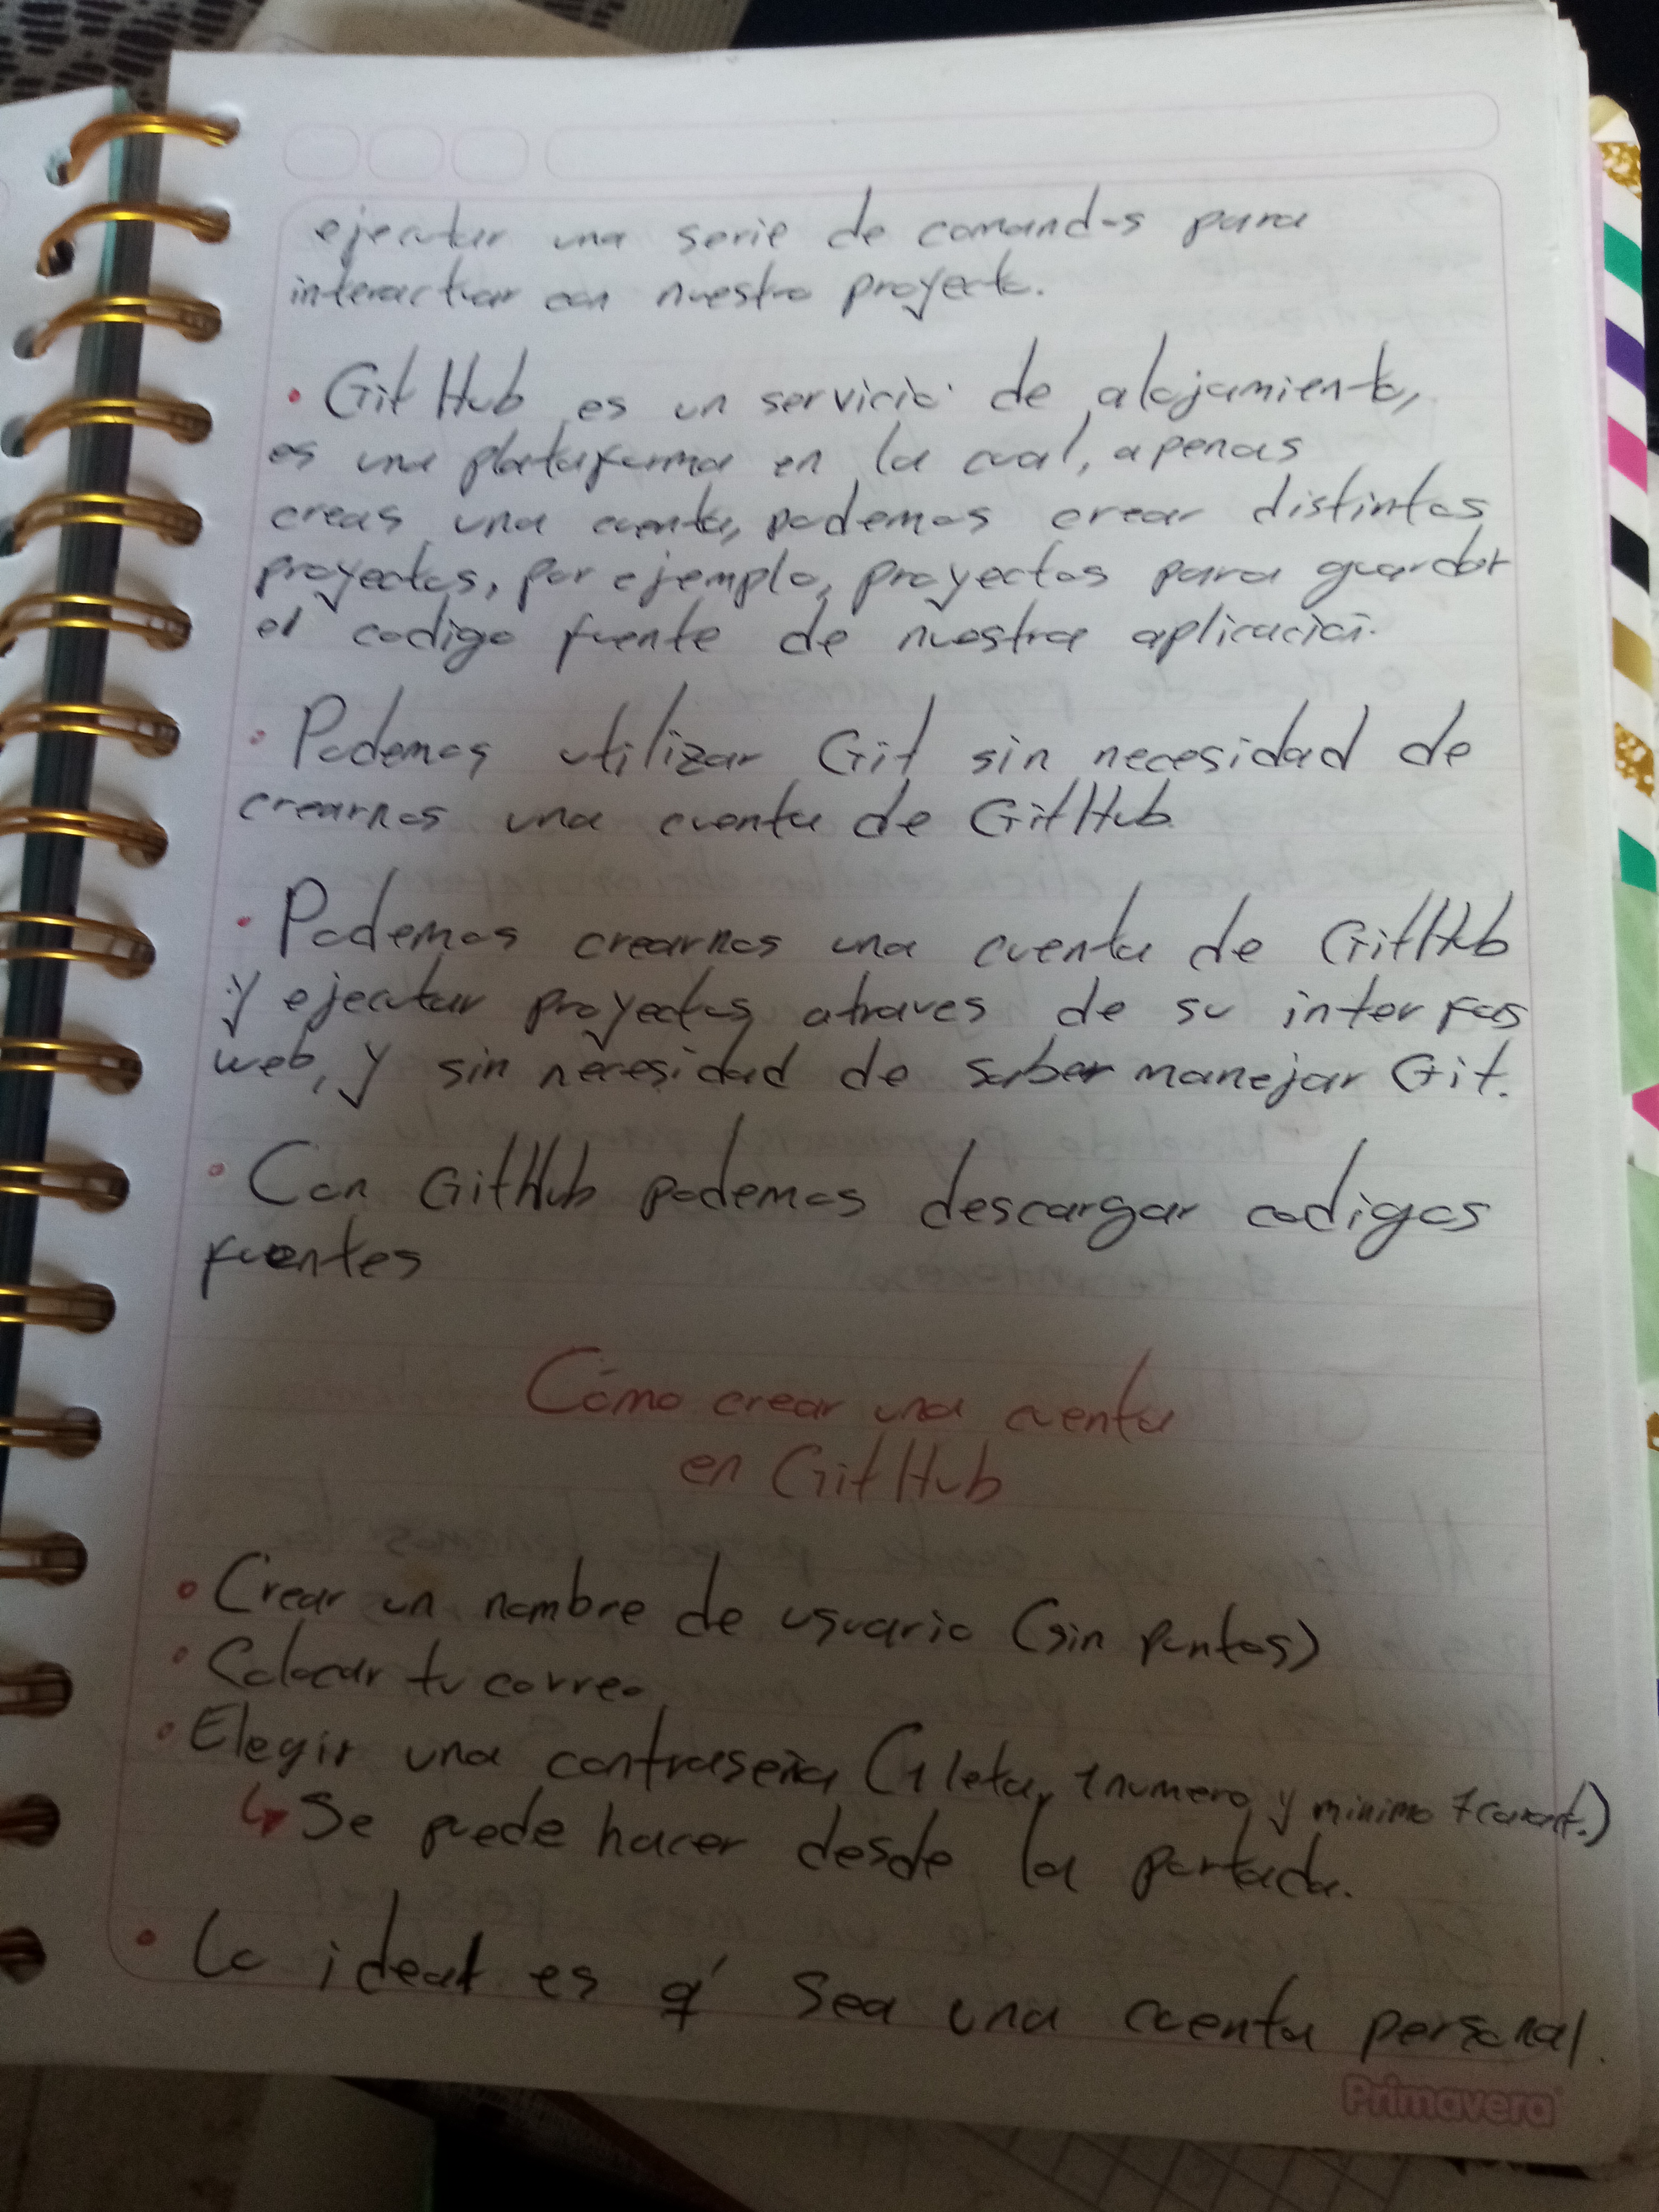 ejecutar una serie de comandos para
interactuar con nuestro proyecto.
• GitHub es un servicio de alojamiento,
es una plataforma en la cual, apenas
creas una cuenta, podemos crear distintos
proyectos, por ejemplo, proyectos para guardar
el codigo fuente de nuestra aplicación.
• Podemos utilizar Git sin necesidad de
crearnos una cuenta de GitHub
• Podemos crearnos una cuenta de GitHub
y ejecutar proyectos atraves de su interfas
web, y sin necesidad de saber manejar Git.
• Con GitHub podemos descargar codigos
fuentes
Cómo crear una cuenta
en GitHub
• Crear un nombre de usuario (sin puntos)
• Colocar tu correo
• Elegir una contraseña (1 leta, 1 numero y minimo 7 caract.)
↳ Se puede hacer desde la portada.
• Lo ideal es q' sea una cuenta personal.
Primavera